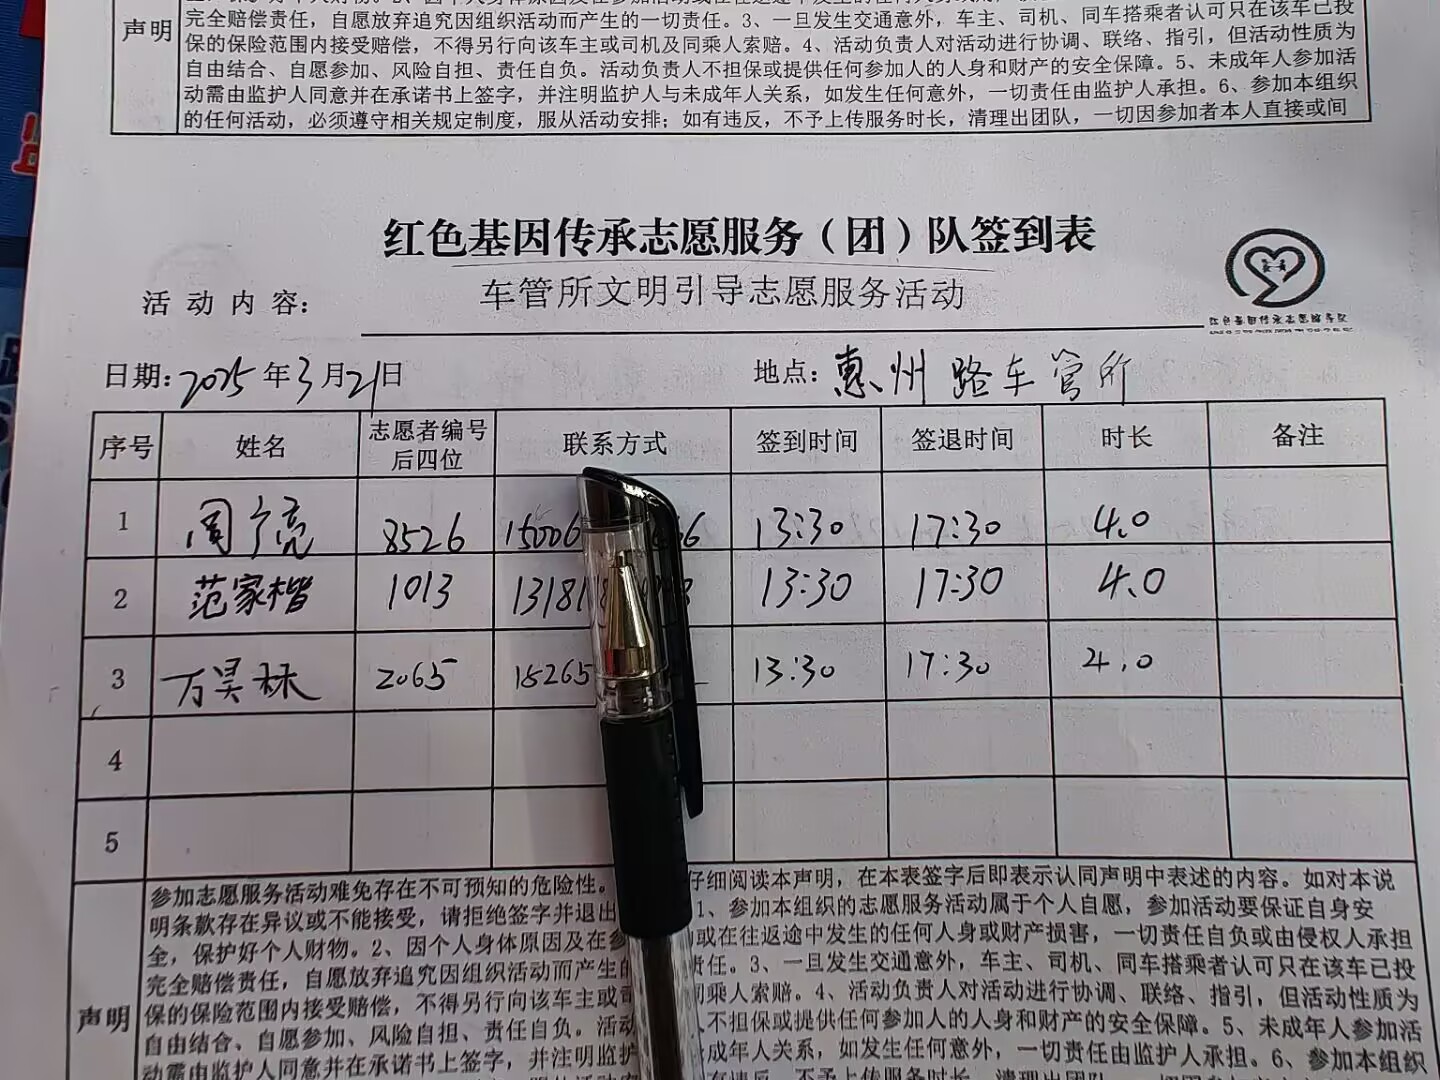 完全赔偿责任，自愿放弃追究因组织活动而产生的一切责任。3、一旦发生交通意外，车主、司机、同车搭乘者认可只在该车已投
声明
保的保险范围内接受赔偿，不得另行向该车主或司机及同乘人索赔。4、活动负责人对活动进行协调、联络、指引，但活动性质为
自由结合、自愿参加、风险自担、责任自负。活动负责人不担保或提供任何参加人的人身和财产的安全保障。5、未成年人参加活
动需由监护人同意并在承诺书上签字，并注明监护人与未成年人关系，如发生任何意外，一切责任由监护人承担。6、参加本组织
的任何活动，必须遵守相关规定制度，服从活动安排；如有违反，不予上传服务时长，清理出团队，一切因参加者本人直接或间
红色基因传承志愿服务（团）队签到表
活动内容：
车管所文明引导志愿服务活动
红色基因传承志愿服务队
日期：2025年3月21日
地点：惠州路车管所
序号 姓名 志愿者编号后四位 联系方式 签到时间 签退时间 时长 备注
1 周宁亮 8526 15006 66 13:30 17:30 4.0
2 范家楷 1013 13181 13:30 17:30 4.0
3 万昊林 2065 18265 13:30 17:30 4.0
4
5
参加志愿服务活动难免存在不可预知的危险性。 仔细阅读本声明，在本表签字后即表示认同声明中表述的内容。如对本说
明条款存在异议或不能接受，请拒绝签字并退出 1、参加本组织的志愿服务活动属于个人自愿，参加活动要保证自身安
全，保护好个人财物。2、因个人身体原因及在参 或在往返途中发生的任何人身或财产损害，一切责任自负或由侵权人承担
完全赔偿责任，自愿放弃追究因组织活动而产生的 责任。3、一旦发生交通意外，车主、司机、同车搭乘者认可只在该车已投
声明
保的保险范围内接受赔偿，不得另行向该车主或司 同乘人索赔。4、活动负责人对活动进行协调、联络、指引，但活动性质为
自由结合、自愿参加、风险自担、责任自负。活动 人不担保或提供任何参加人的人身和财产的安全保障。5、未成年人参加活
动需由监护人同意并在承诺书上签字，并注明监护 成年人关系，如发生任何意外，一切责任由监护人承担。6、参加本组织